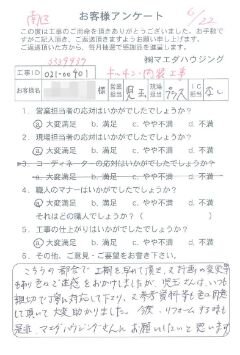 南区
お客様アンケート
6/22
この度は工事のご用命を頂きありがとうございました。お手数で
すがご記入頂き、ご返送頂きますようお願い申し上げます。
ご返送頂いた方から、毎月抽選で感謝品を進呈します。
㈱マエダハウジング
工事ID 021-00901 キッチン・内装工事
お客様名 様 営業担当 児玉 現場担当 IC担当 なし
1. 営業担当者の応対はいかがでしたでしょうか?
a. 大変満足 b. 満足 c. やや不満 d. 不満
2. 現場担当者の応対はいかがでしたでしょうか?
a. 大変満足 b. 満足 c. やや不満 d. 不満
3. コーディネーターの応対はいかがでしたでしょうか?
a. 大変満足 b. 満足 c. やや不満 d. 不満
4. 職人のマナーはいかがでしたでしょうか?
a. 大変満足 b. 満足 c. やや不満 d. 不満
それはどの職人でしょうか?( )
5. 工事の仕上がりはいかがでしたでしょうか?
a. 大変満足 b. 満足 c. やや不満 d. 不満
6. その他、ご意見・ご要望をお書き下さい。
こちらの都合で工期を早めて頂き、又計画の変更等
も有り色々ご迷惑をおかけしましたが、児玉さんは、いつも
親切で丁寧に対応して下さり、又参考資料等も色々用意
して頂いて大変助かりました。今後、リフォームする時も
是非、マエダハウジングさんにお願いしたいと思います